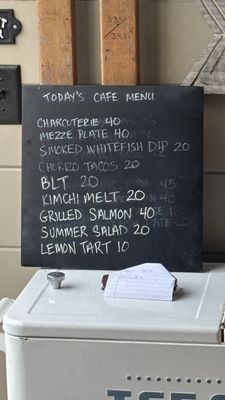 TODAY'S CAFE MENU
CHARCUTERIE 40
MEZZE PLATE 40
SMOKED WHITEFISH DIP 20
CHORRO TACOS 20
BLT 20
KIMCHI MELT 20
GRILLED SALMON 40
SUMMER SALAD 20
LEMON TART 10